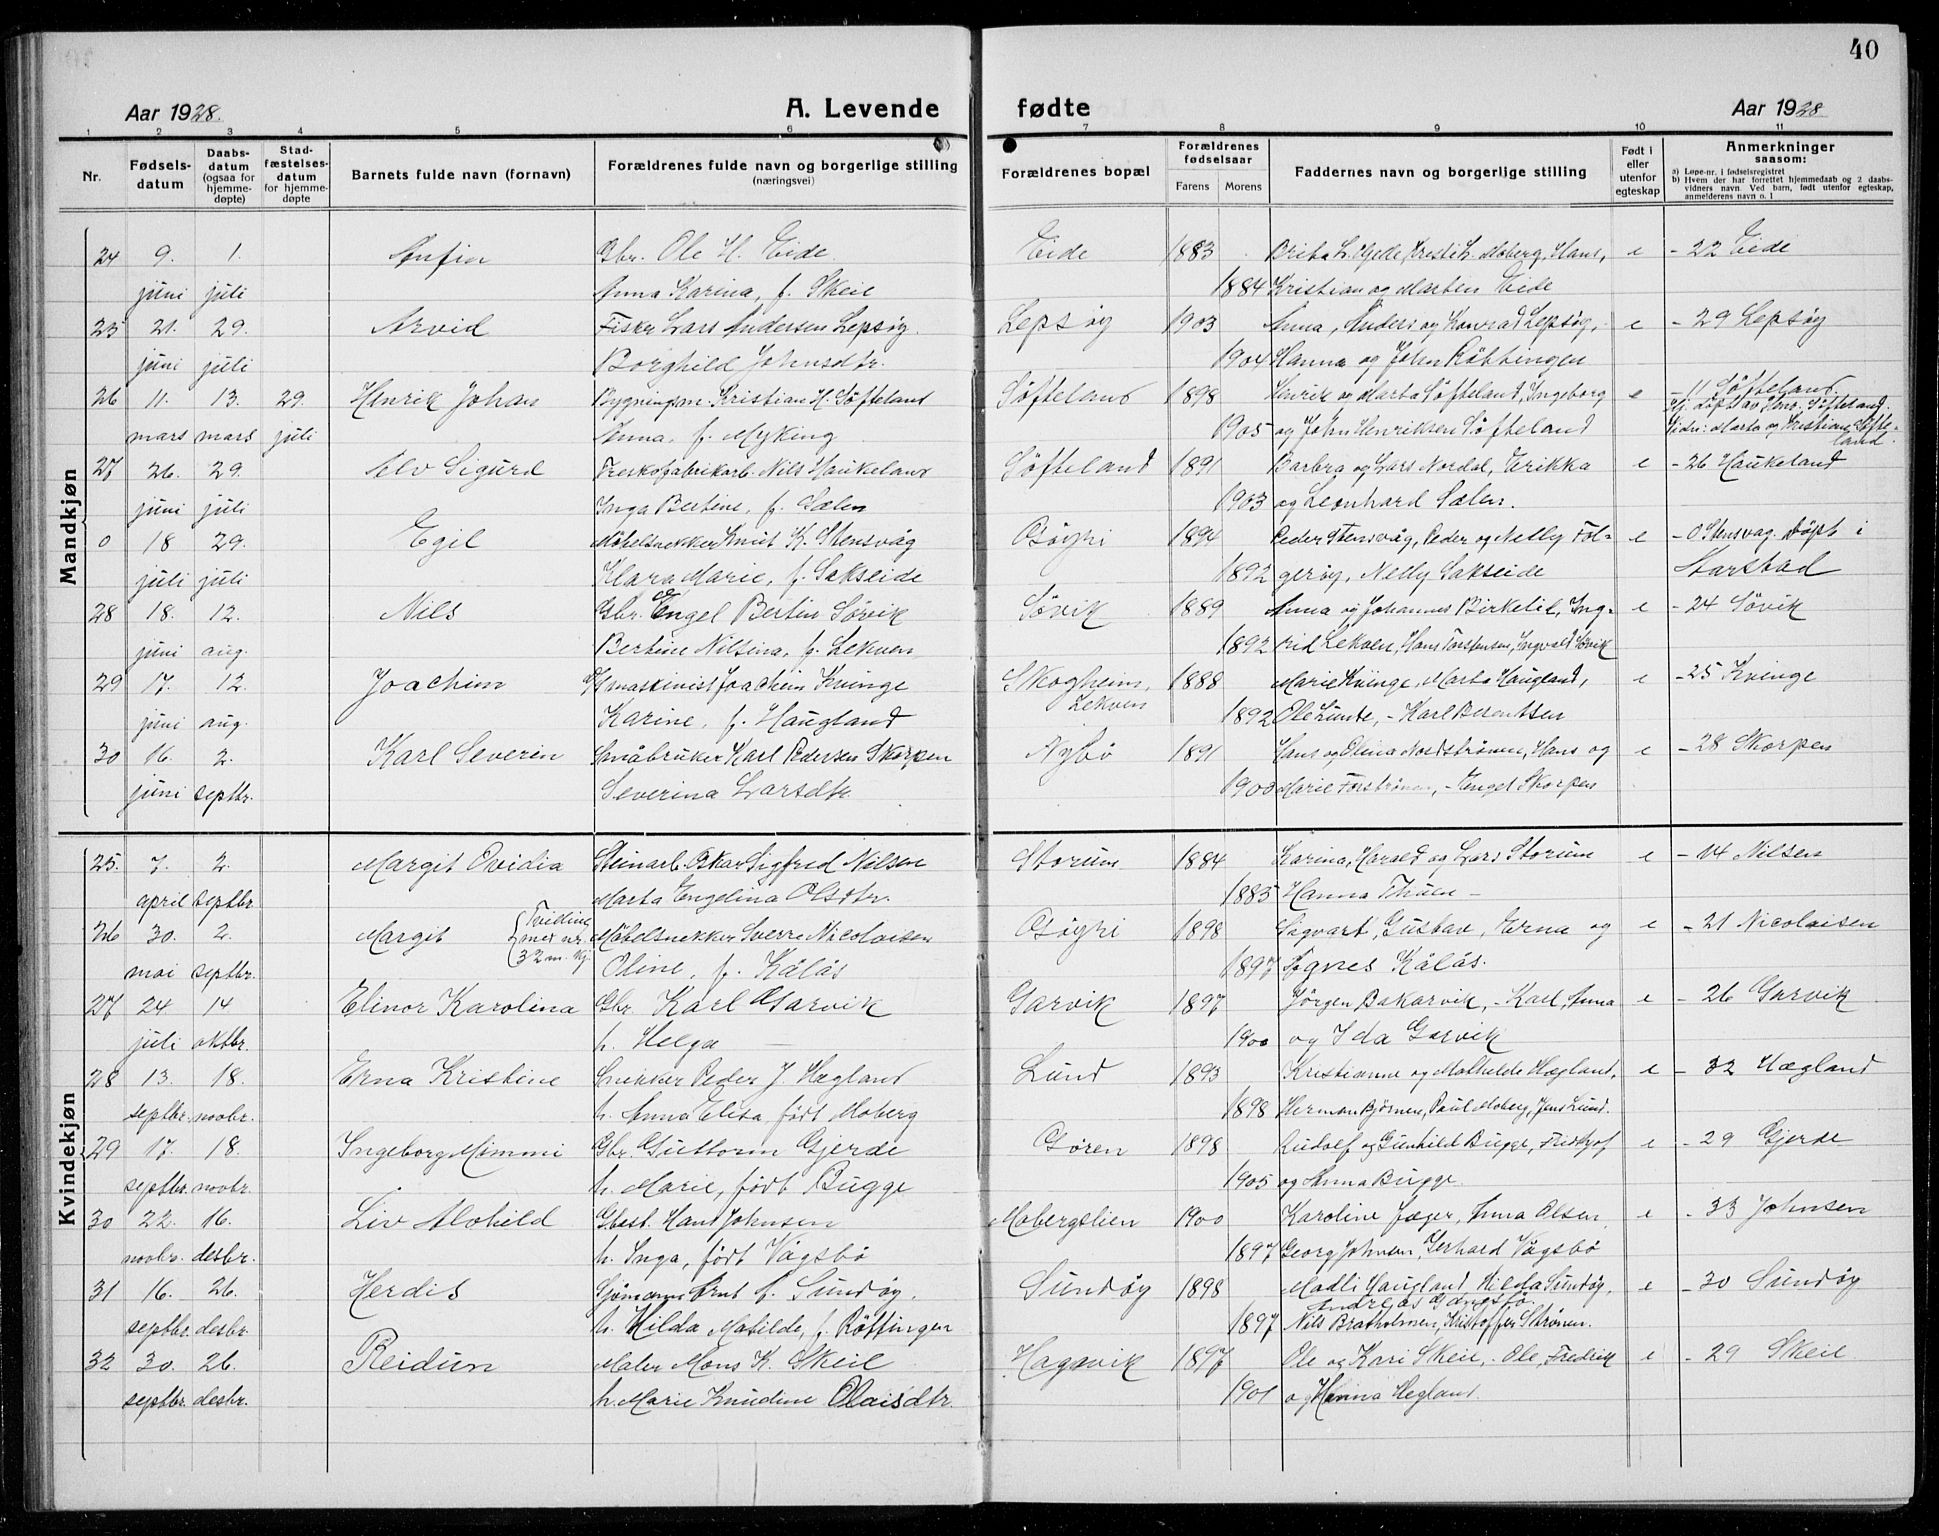 40
Aar 1928. A. Levende fødte Aar 1928
1 2 3 4 5 6 7 8 9 10 11
Nr. Fødsels-datum Daabs-datum (ogsaa for hjemme-døpte) Stad-fæstelses-datum for hjemme-døpte Barnets fulde navn (fornavn) Forældrenes fulde navn og borgerlige stilling (næringsvei) Forældrenes bopæl Forældrenes fødselsaar Farens Morens Faddernes navn og borgerlige stilling Født i eller utenfor egteskap Anmerkninger saasom:
a) Løpe-nr. i fødselsregistret
b) Hvem der har forrettet hjemmedaab og 2 daabs-vidners navn. Ved barn, født utenfor egteskap, anmelderens navn o. l
Mandkjøn
24 9. 1. Anfin Gbr. Ole H. Eide. Eide 1883 Brita L. Gjede, Kresti L. Moberg, Hans, e - 22 Eide
juni juli Anna Karina, f. Skeie 1884 Kristian og Marten Eide
25 21. 29. Arvid Fisker Lars Andersen Lepsøy Lepsøy 1903 Anna, Anders og Konrad Lepsøy, e - 29 Lepsøy
juni juli Borghild Johnsdtr. 1904 Hanna og John Røttingen
26 11. 13. 29. Henrik Johan Bygningsm. Kristian H. Søfteland Søfteland 1898 Henrik og Marta Søfteland, Ingeborg e - 11 Søfteland.
mars mars juli Anna, f. Myking 1905 og John Henriksen Søfteland Hj. døpt av Henr. Søfteland. Vidn: Marta og Kristian Søfteland.
27 26. 29. Alv Sigurd Treskofabrikarb. Nils Haukeland Søfteland 1891 Barbra og Lars Nordal, Erikka e - 26 Haukeland
juni juli Inga Bertine, f. Sælen 1903 og Leonhard Sælen.
0 18 29. Egil Møbelsnekker Knut K. Stensvåg Osøyri 1894 Peder Stensvåg, Peder og Nelly Föl- e - 0 Stensvag. Döpt i
juli juli Klara Marie, f. Sakseide 1892 gerøy, Nelly Sakseide Harstad
28 18. 12. Nils Gbr. Engel Bertin Søvik Søvik 1889 Anna og Johannes Birkelil, Ing- e - 24 Søvik
juni aug. Bertine Nilsina, f. Lekven 1892 rid Lekven, Hans Torstensen, Ingvald Søvik
29 17. 12. Joachim maskinist Joachim Kvinge Skogheim, Lekven 1888 Marie Kvinge, Marta Haugland, e - 25 Kvinge
juni aug. Karine, f. Haugland 1892 Ole Lunde, - Karl Berentsen
30 16. 2. Karl Severin Småbruker Karl Pedersen Skorpen Nybø 1891 Hans og Olina Nordstrønen, Hans og e - 28 Skorpen
juni septbr. Severina Larsdtr. 1900 Marie Forstrønen, - Engel Skorpen
Kvindekjøn
25. 7. 2. Margit Ovidia Steinarb. Oskar Sigfred Nilsen Storum 1884 Karina, Harald og Lars Storum e - 14 Nilsen
april septbr. Marta Engelina Olsdtr. 1885 Hanna Thuen -
26 30. 2. Margit {Tvilling med nr. 32 m. kj. Møbelsnekker Sverre Nicolaisen Osøyri 1898 Sigvart, Gustav, Erna og e - 21 Nicolaisen
mai septbr. Oline, f. Kålås 1897 Agnes Kålås.
27 24 14 Elinor Karolina Gbr. Karl Garvik Garvik 1897 Jørgen Bakarvik, - Karl, Anna e - 26 Garvik
juli oktbr. h. Helga - 1900 og Ida Garvik
28 13. 18. Erna Kristine Snekker Peder J. Hægland Lund 1893 Kristianne og Mathilde Hægland, e - 32 Hægland
septbr. novbr. h. Anna Elisa, født Moberg 1898 Herman Bjørnen, Paul Moberg, Jens Lund.
29 17. 18. Ingeborg Mimmi Gbr. Guttorm Gjerde Gøren 1898 Rudolf og Gunhild Bugge, Fridtjof e - 29 Gjerde
septbr. novbr. h. Marie, født Bugge 1905 og Anna Bugge.
30 22. 16. Liv Alvhild Gbest. Hans Johnsen Mobergslien 1900 Karoline Jæger, Anna Olsen, e - 33 Johnsen
novbr. desbr. h. Inga, født Vågsbø 1897 Georg Johnsen, Gerhard Vågsbø
31 16. 26. Herdis Sjømann Arnt f. Sundøy. Sundøy 1898 Madli Haugland, Hilda Sundøy, e - 30 Sundøy
septbr. desbr. h. Hilda Matilde, f. Røttingen 1897 Nils Bratholmen, Kristoffer Strønen.
32 30. 26. Reidun Maler Mons K. Skeie Hagavik 1897 Ole og Kari Skeie, - Ole, Fredrik e - 29 Skeie
septbr. desbr. h. Marie Knudine Olaisdtr. 1901 og Hanna Hegland.